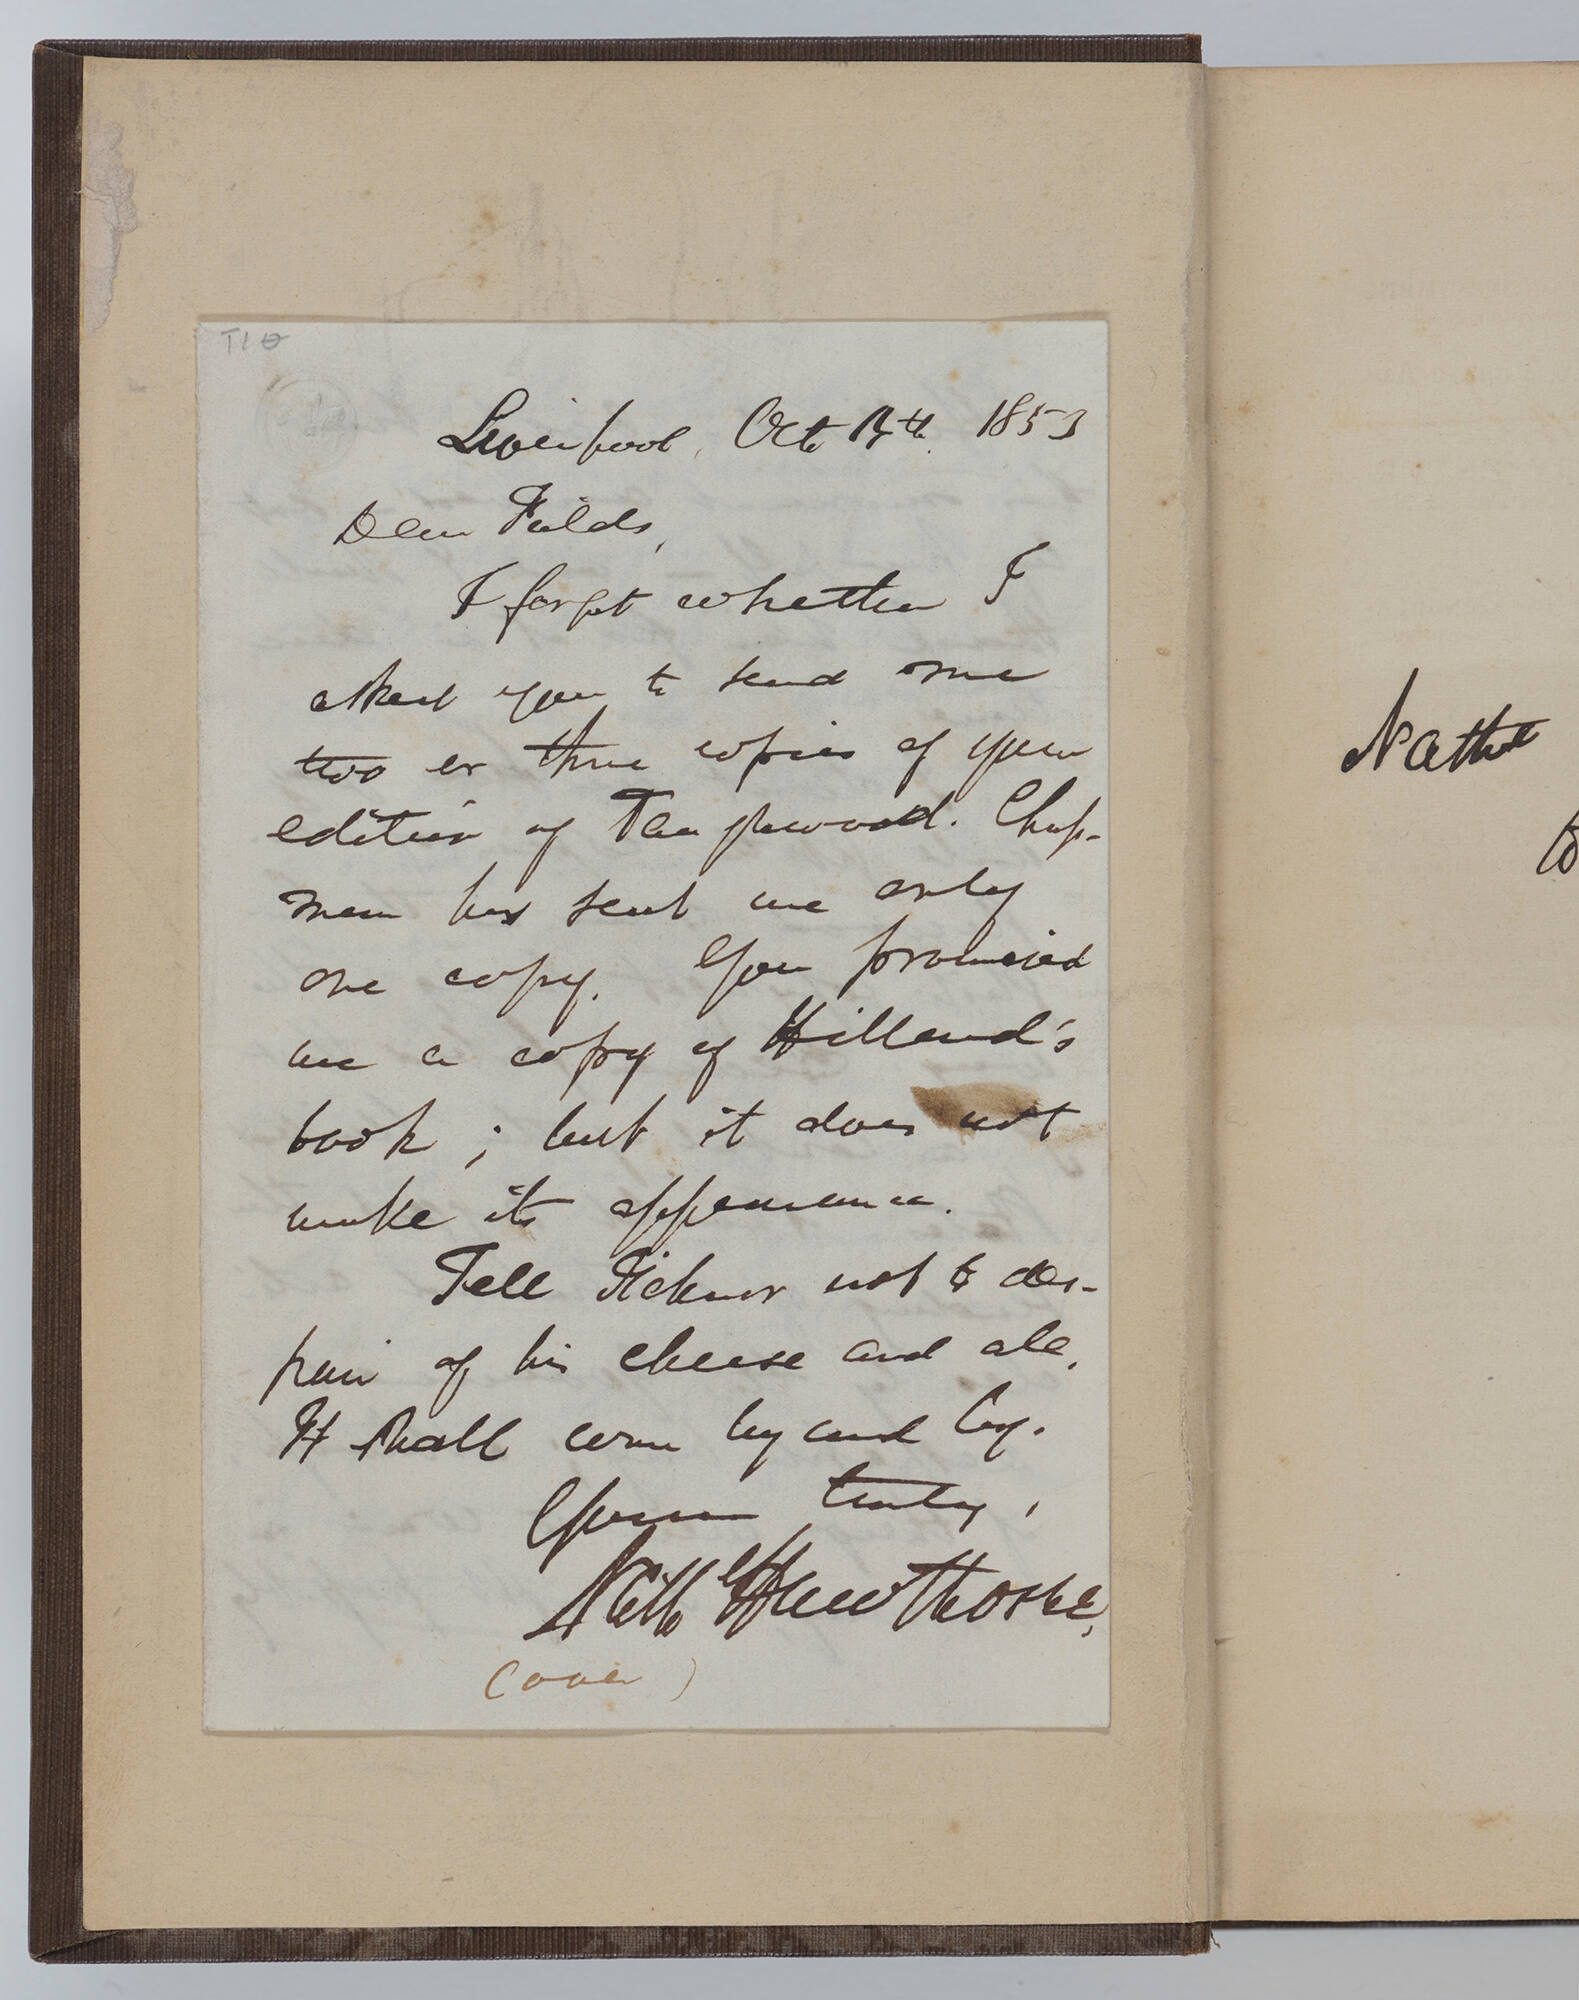 T10
Liverpool, Oct 14th. 1853
Dear Fields,
I forget whether I
asked you to send me
two or three copies of your
edition of Tanglewood. Chap-
man has sent me only
one copy. You promised
me a copy of Hillard's
book; but it does not
make its appearance.
Tell Ticknor not to des-
pair of his cheese and ale.
It shall come by and by.
Yours truly,
Nath Hawthorne.
(over)
Nath